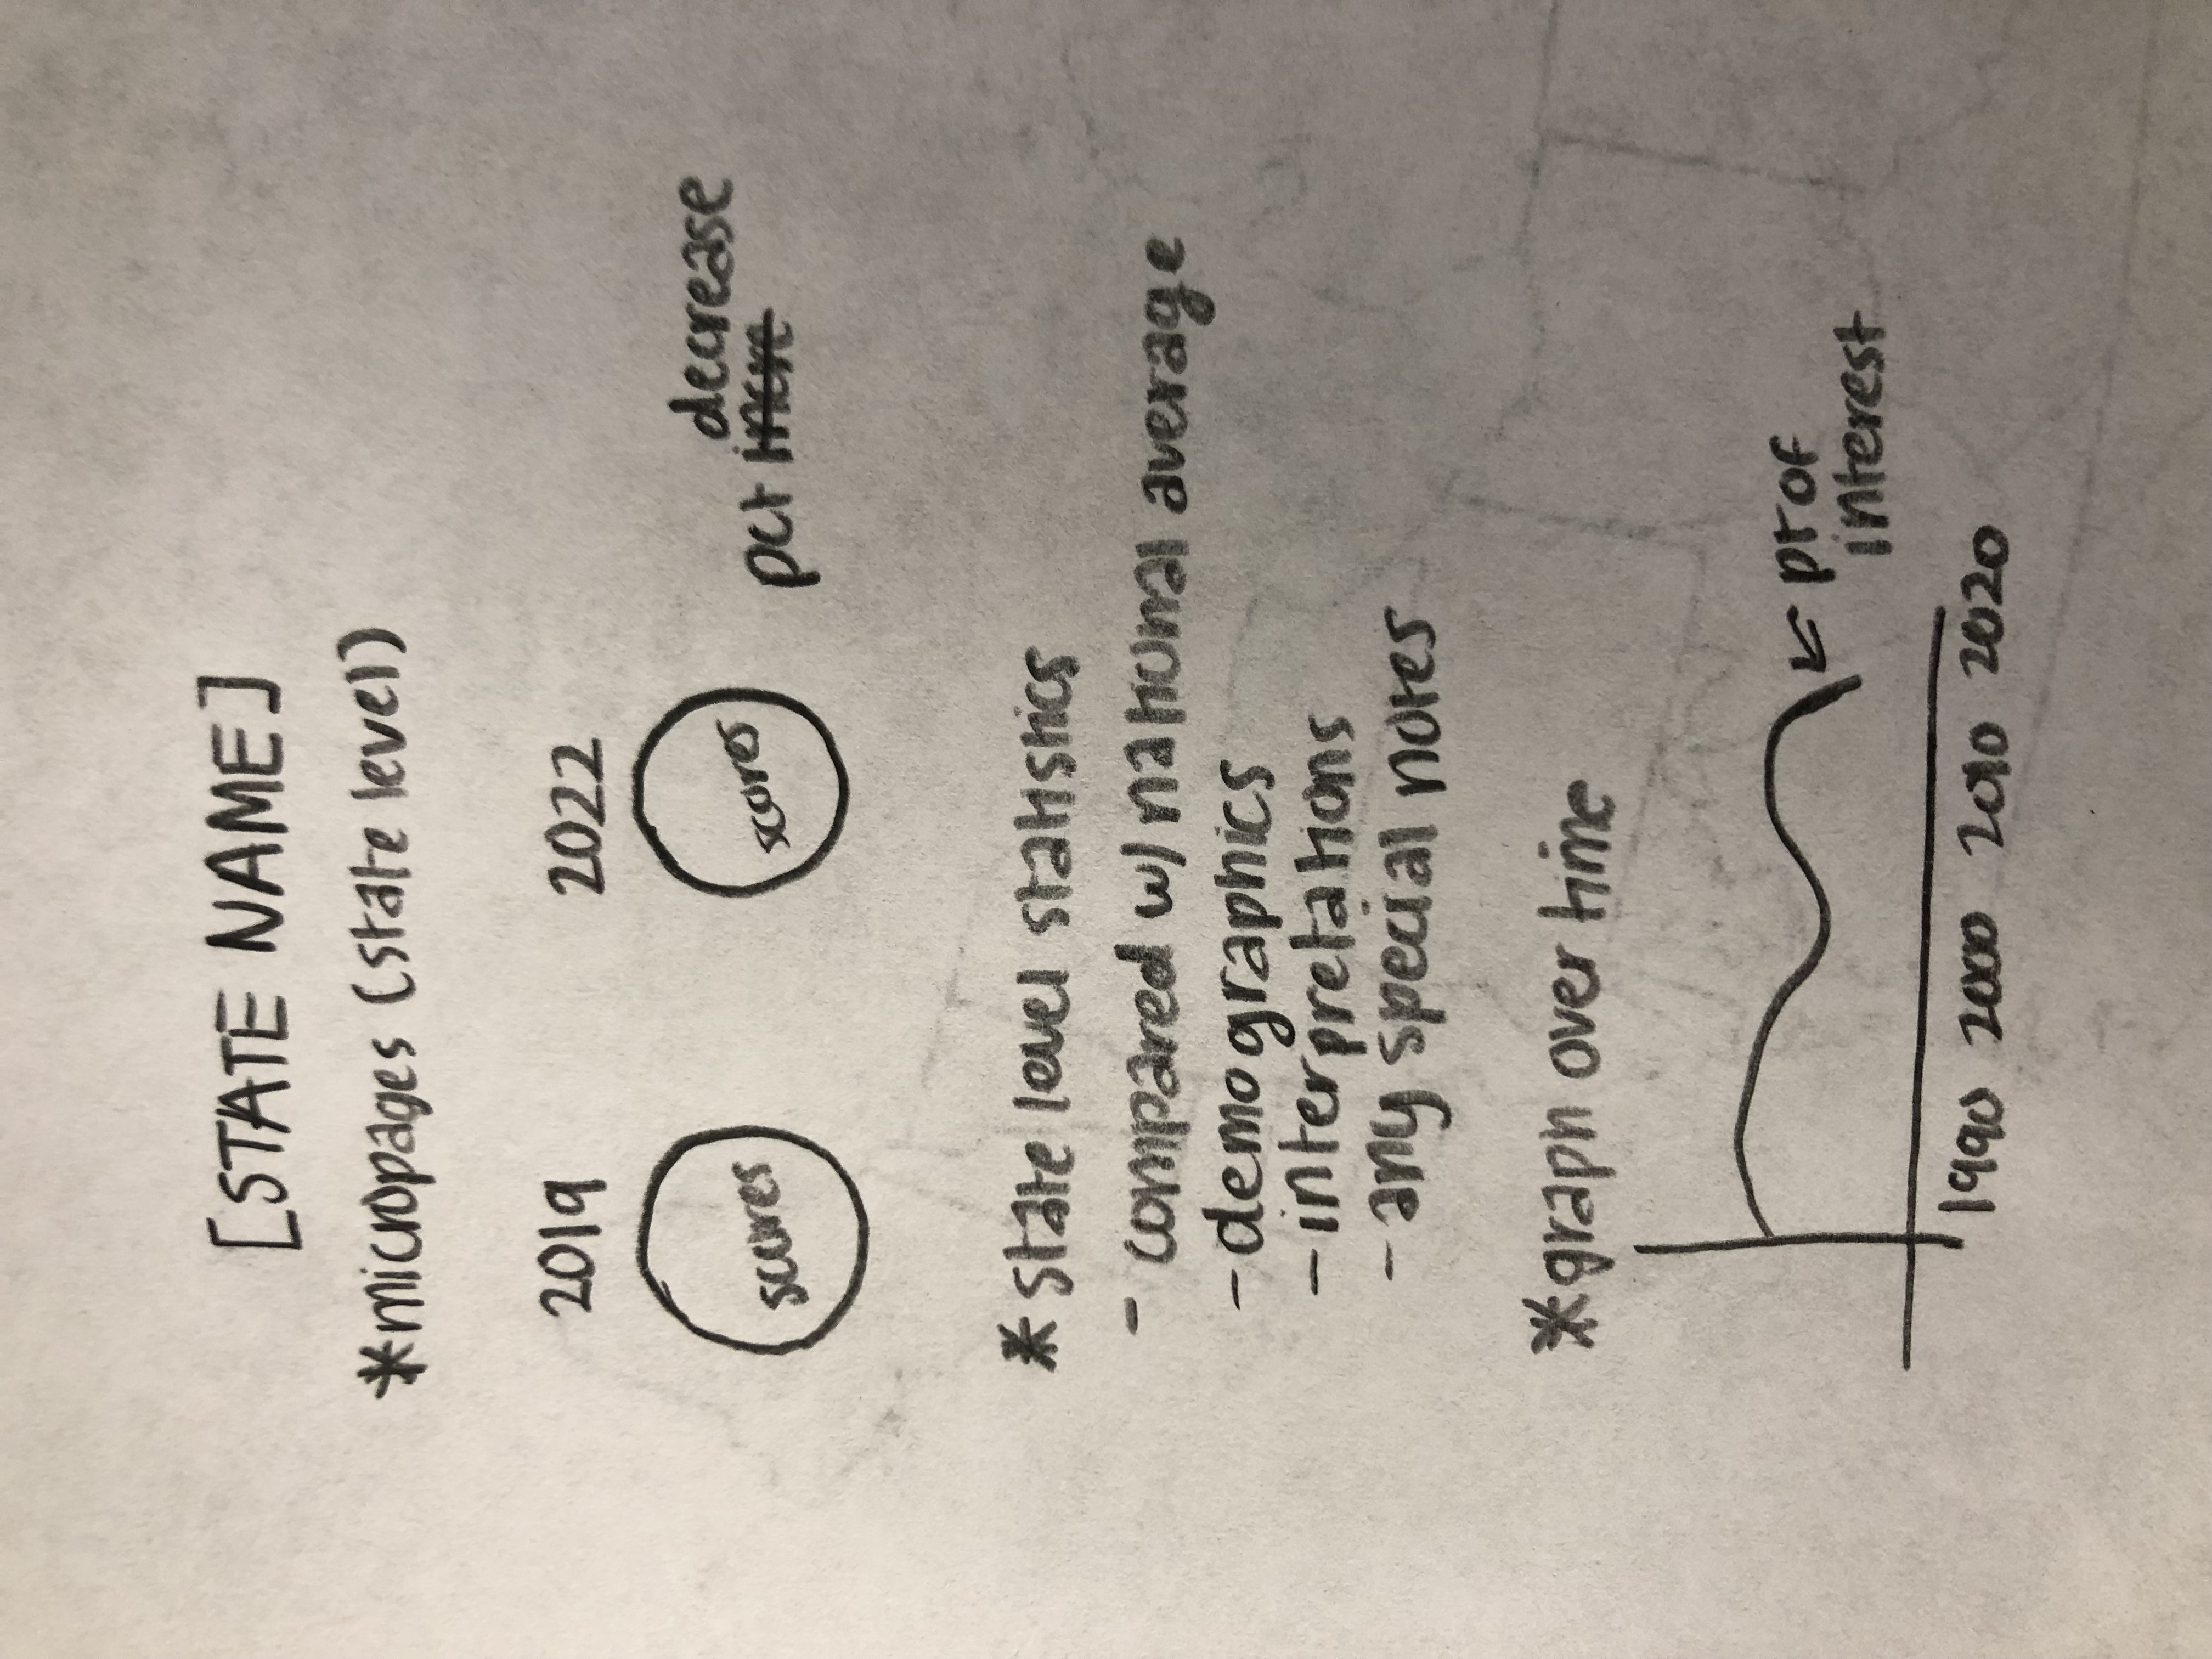 [STATE NAME]
*micropages (state level)
2019 2022
scores scores
decrease
pct incre
* state level statistics
- compared w/ national average
- demographics
- interpretations
- any special notes
*graph over time
pt of
interest
1990 2000 2010 2020